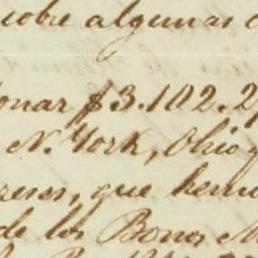 sobre algunas c
onar $3.102.2
N. York, Ohio y
que hemo
de los Bonos M